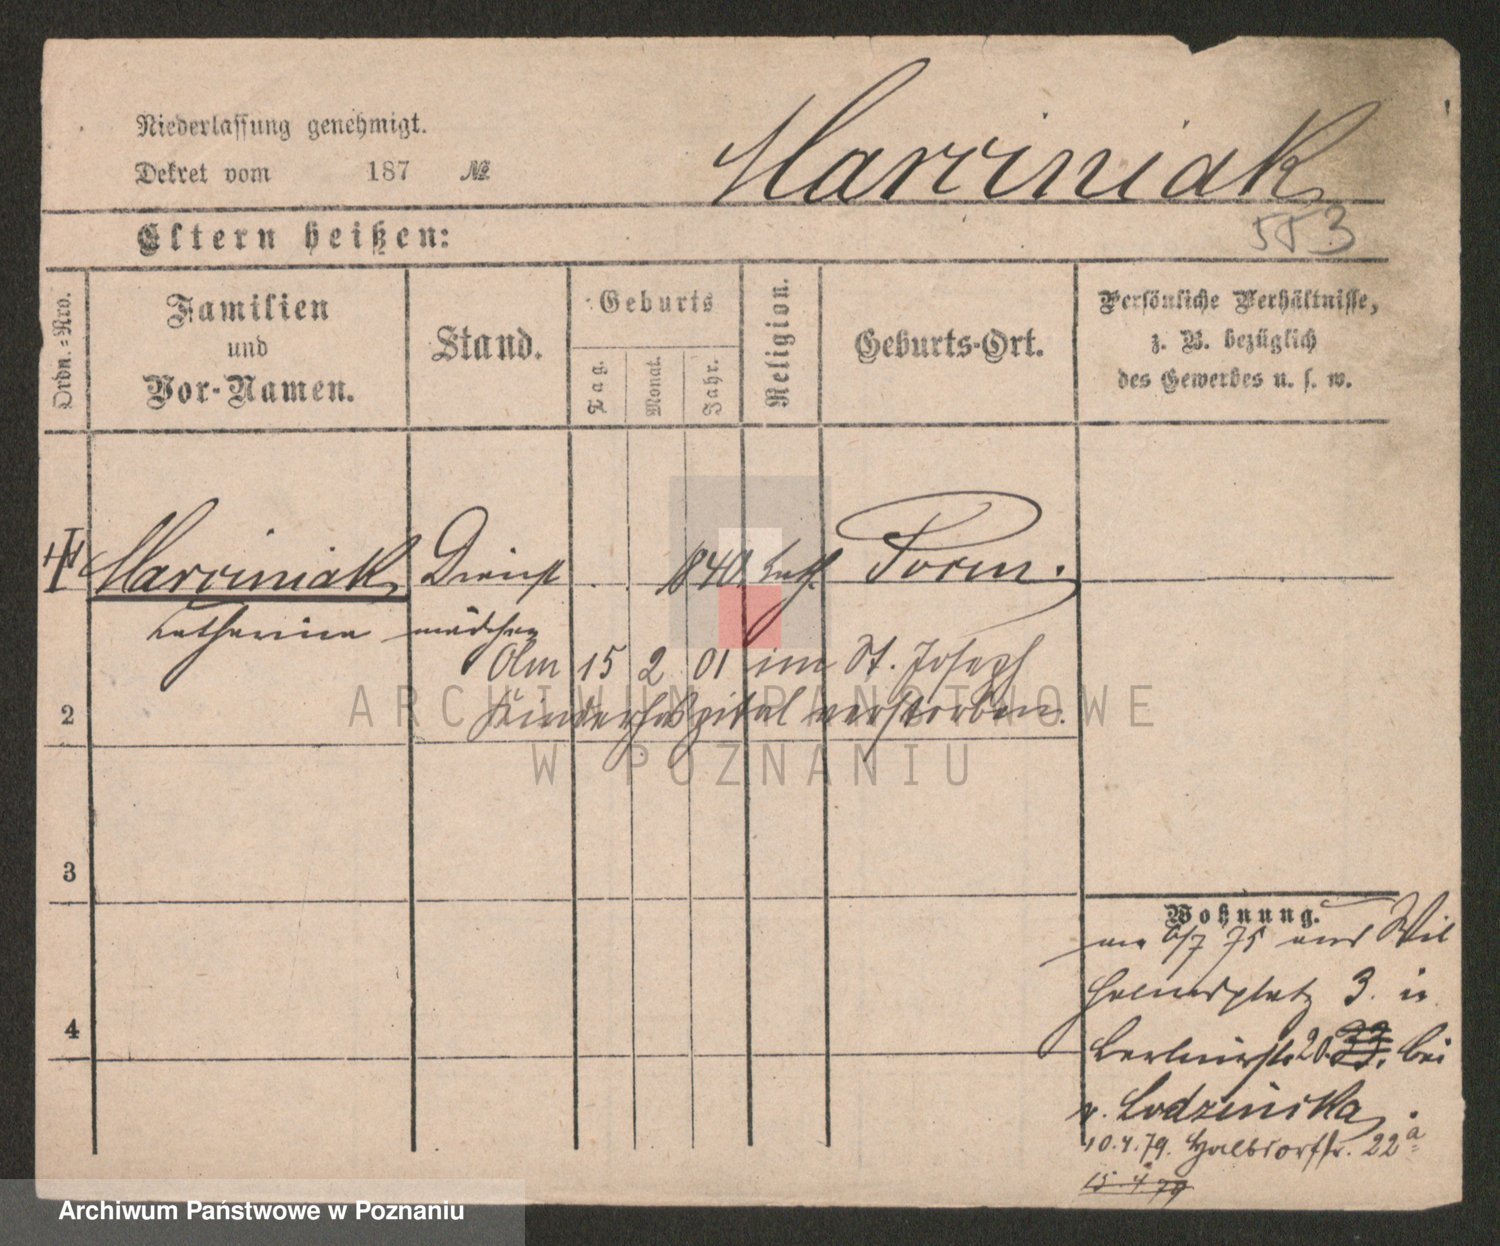 Niederlassung genehmigt.
Dekret vom 187 №
Marciniak
553
Eltern heißen:
Ordn.=Nro.
Familien
und
Vor-Namen.
Stand.
Geburts
Tag.
Monat.
Jahr.
Religion.
Geburts-Ort.
Persönliche Verhältnisse,
z. B. bezüglich
des Gewerbes u. s. w.
Marciniak Dienst 1840. kath. Posen.
Katharina mädchen
Am 15 2 01 im St. Joseph
Kinderhospital verstorben.
2
3
4
Wohnung.
am 6/7 75 aus Wil
helmsplatz 3. in
Berlinerstr 20. 33. bei
v. Lodzinska
10.4.79. Halbdorfstr. 22a
15.4.79
ARCHIWUM PAŃSTWOWE
W POZNANIU
Archiwum Państwowe w Poznaniu